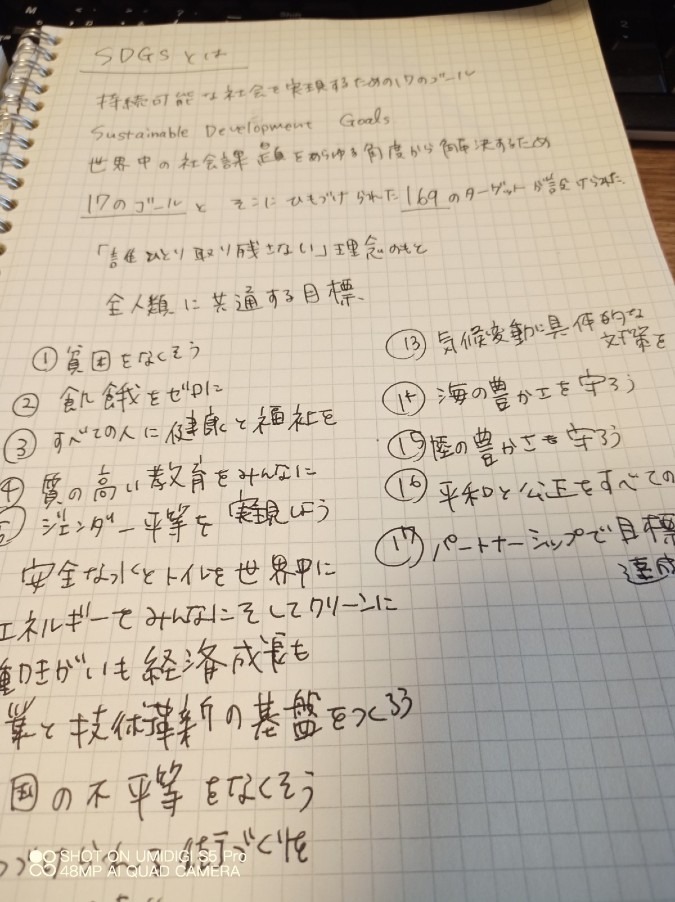 SDGsとは
持続可能な社会を実現するための17のゴール
Sustainable Development Goals
世界中の社会課題をあらゆる角度から解決するため
17のゴールと そこにひもづけられた169のターゲットが設けられた.
「誰ひとり取り残さない」理念のもと
全人類に共通する目標、
① 貧困をなくそう
② 飢餓をゼロに
③ すべての人に健康と福祉を
④ 質の高い教育をみんなに
ジェンダー平等を実現しよう
安全な水とトイレを世界中に
エネルギーをみんなにそしてクリーンに
働きがいも経済成長も
業と技術革新の基盤をつくろう
国の不平等をなくそう
⑬ 気候変動に具体的な
対策を
⑭ 海の豊かさを守ろう
⑮ 陸の豊かさも守ろう
⑯ 平和と公正をすべての
⑰ パートナーシップで目標
達成
SHOT ON UMIDIGI S5 Pro
48MP AI QUAD CAMERA